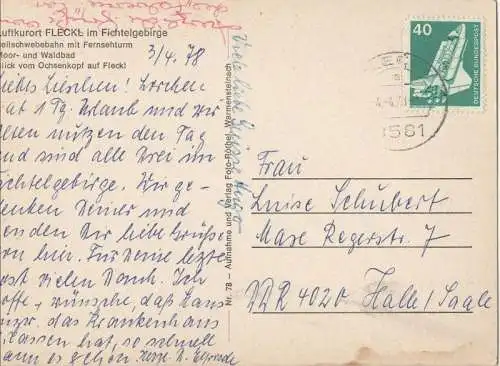 Luftkurort FLECKL im Fichtelgebirge
Seilschwebebahn mit Fernsehturm
Moor- und Waldbad
Blick vom Ochsenkopf auf Fleckl
3/4. 78
Liebes Lieschen! Lorchen
hat 1 Tg. Urlaub und wir
wollen nutzen den Tag
und sind alle Drei im
Fichtelgebirge. Wir ge-
denken Deiner und
senden Dir liebe Grüße
Für Deine letzte
Post vielen Dank. Ich
hoffe + wünsche, daß Hans
das Krankenhaus
lassen hat, so schnell
kann es gehen. Herzl.
Viele liebe Grüße
Nr. 78 – Aufnahme und Verlag Foto-Röthel, Warmensteinach
40
DEUTSCHE BUNDESPOST
8581
Frau
Luise Schubert
Max Regerstr. 7
DDR 4020 Halle/Saale